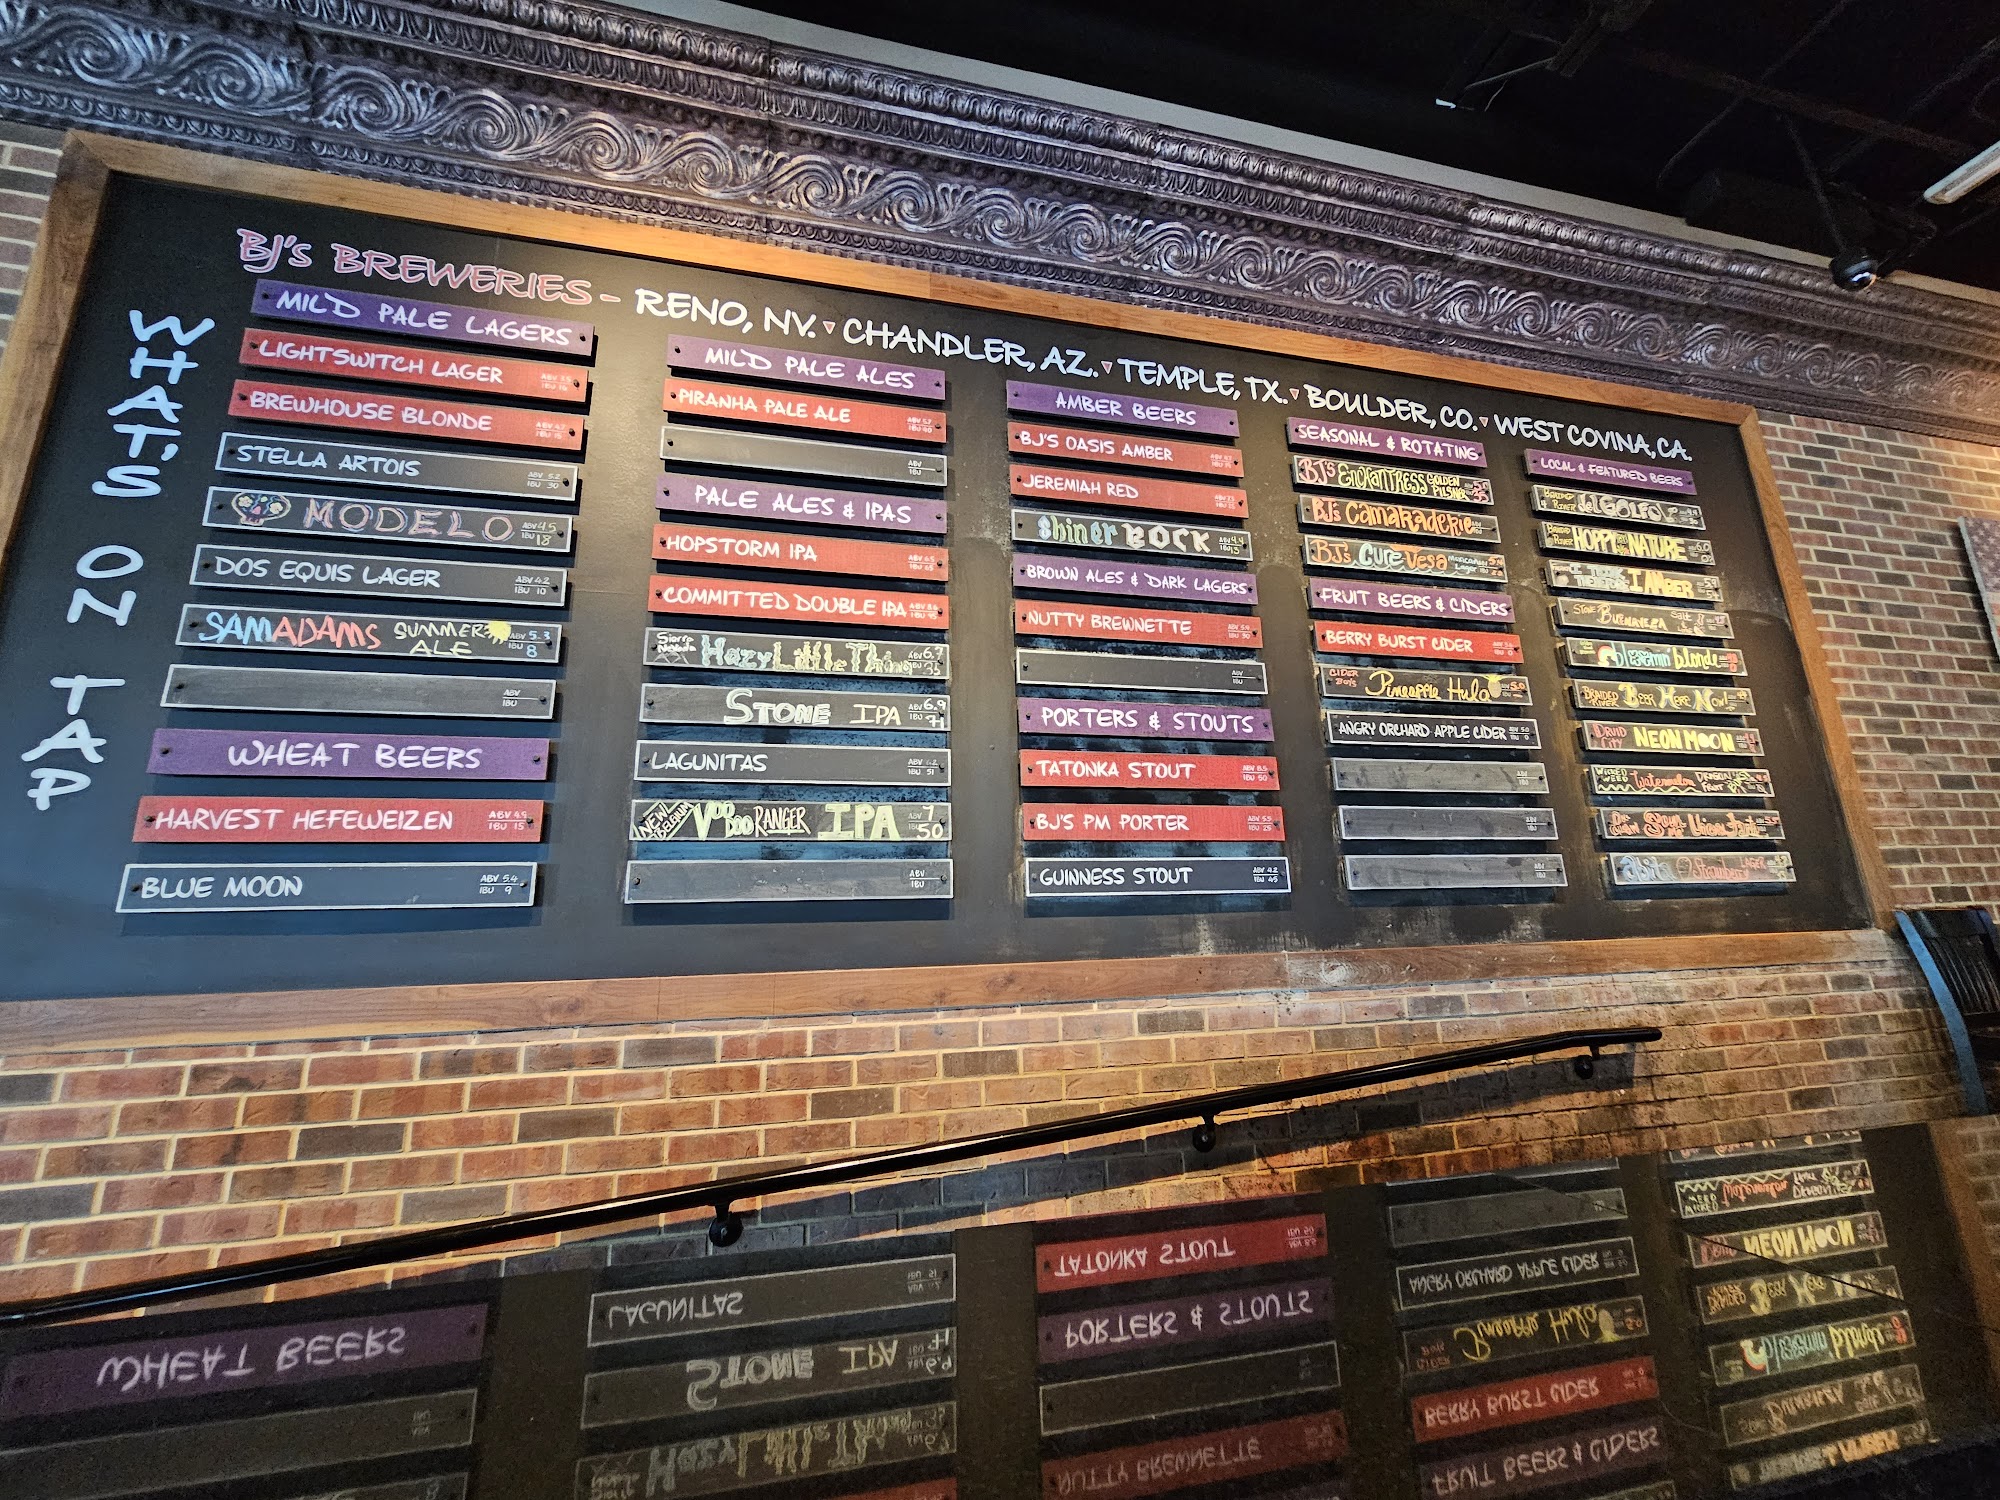 BJ'S BREWERIES - RENO, NV. CHANDLER, AZ. TEMPLE, TX. BOULDER, CO. WEST COVINA, CA.
WHAT'S ON TAP
MILD PALE LAGERS
LIGHTSWITCH LAGER
BREWHOUSE BLONDE
STELLA ARTOIS ABV 5.2 IBU 30
MODELO ABV 4.5 IBU 18
DOS EQUIS LAGER ABV 4.2 IBU 10
SAM ADAMS SUMMER ALE ABV 5.3 IBU 8
ABV IBU
WHEAT BEERS
HARVEST HEFEWEIZEN ABV 4.9 IBU 15
BLUE MOON ABV 5.4 IBU 9
MILD PALE ALES
PIRANHA PALE ALE
ABV IBU
PALE ALES & IPAS
HOPSTORM IPA
COMMITTED DOUBLE IPA
Sierra Nevada Hazy Little Thing ABV 6.7 IBU 35
STONE IPA ABV 6.9 IBU 71
LAGUNITAS ABV 6.2 IBU 51
NEW BELGIUM VOODOO RANGER IPA ABV 7 IBU 50
ABV IBU
AMBER BEERS
BJ'S OASIS AMBER
JEREMIAH RED
Shiner BOCK ABV 4.4 IBU 13
BROWN ALES & DARK LAGERS
NUTTY BREWNETTE
ABV IBU
PORTERS & STOUTS
TATONKA STOUT ABV 8.5 IBU 50
BJ'S PM PORTER ABV 5.5 IBU 25
GUINNESS STOUT ABV 4.2 IBU 45
SEASONAL & ROTATING
BJ'S ENCHANTRESS GOLDEN PILSNER
BJ's CAMARADERIE
BJ's Cure Vesa
FRUIT BEERS & CIDERS
BERRY BURST CIDER
CIDER BOYS Pineapple Hula ABV 5.0
ANGRY ORCHARD APPLE CIDER
ABV IBU
ABV IBU
ABV IBU
LOCAL & FEATURED BEERS
DEL GOLFO
HOPPY NATURE
I THINK THEREFORE I AMBER
STONE BUENAVEZA SALT
blonde
BRAIDED RIVER BEER HERE NOW!
DRUID CITY NEON MOON
WICKED WEED Watermelon DRAGON FRUIT
abita Strawberry LAGER